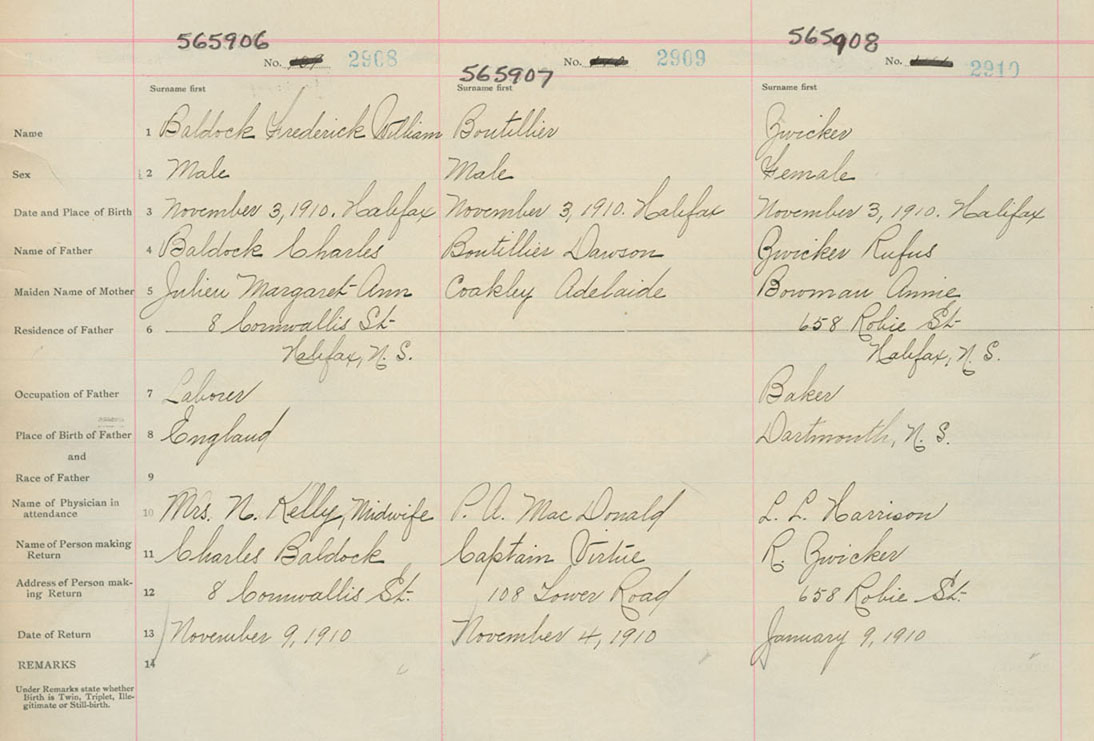 565906 565907 565908
No. 2908 No. 2909 No. 2910
Surname first Surname first Surname first
Name 1 Baldock Frederick William Boutillier Zwicker
Sex 2 Male Male Female
Date and Place of Birth 3 November 3, 1910. Halifax November 3, 1910. Halifax November 3, 1910. Halifax
Name of Father 4 Baldock Charles Boutillier Dawson Zwicker Rufus
Maiden Name of Mother 5 Julien Margaret Ann Coakley Adelaide Bowman Annie
Residence of Father 6 8 Cornwallis St. 658 Robie St.
Halifax, N. S. Halifax, N. S.
Occupation of Father 7 Laborer Baker
Place of Birth of Father 8 England Dartmouth, N. S.
and
Race of Father 9
Name of Physician in
attendance 10 Mrs. N. Kelly, Midwife P. A. MacDonald L. L. Harrison
Name of Person making
Return 11 Charles Baldock Captain Virtue R. Zwicker
Address of Person mak-
ing Return 12 8 Cornwallis St. 108 Tower Road 658 Robie St.
Date of Return 13 November 9, 1910 November 4, 1910 January 9, 1910
REMARKS 14
Under Remarks state whether
Birth is Twin, Triplet, Ille-
gitimate or Still-birth.